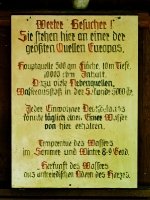 Werter Besucher!
Sie stehen hier an einer der
größten Quellen Europas.
Hauptquelle 500 qm Fläche, 10 m Tief.
Dazu viele Nebenquellen,
Wasserausstoß in der Sekunde 5000 ltr.
Jeder Einwohner Deutschlands
könnte täglich einen Eimer Wasser
von hier erhalten.
Temperatur des Wassers
im Sommer und Winter 8-9 Grad.
Herkunft des Wassers
aus unterirdischen Adern des Harzes.